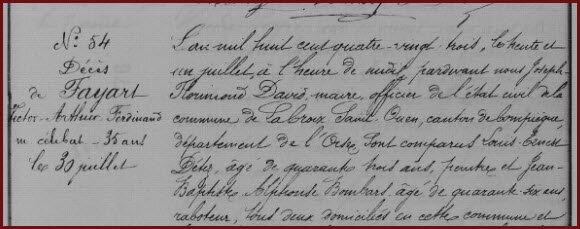 N° 54
Décès
de Fayart
Victor-Arthur Ferdinand
célibat - 35 ans
le 30 juillet
L'an mil huit cent quatre-vingt trois, le trente et
un juillet à l'heure de midi, pardevant nous Joseph
Florimond David, maire, officier de l'état civil de la
commune de La Croix Saint Ouen, canton de Compiègne,
département de l'Oise, sont comparus Louis Ernest
âgé de quarante trois ans, peintre et Jean-
Baptiste Alphonse Bombart, âgé de quarante six ans,
raboteur, tous deux domiciliés en cette commune et